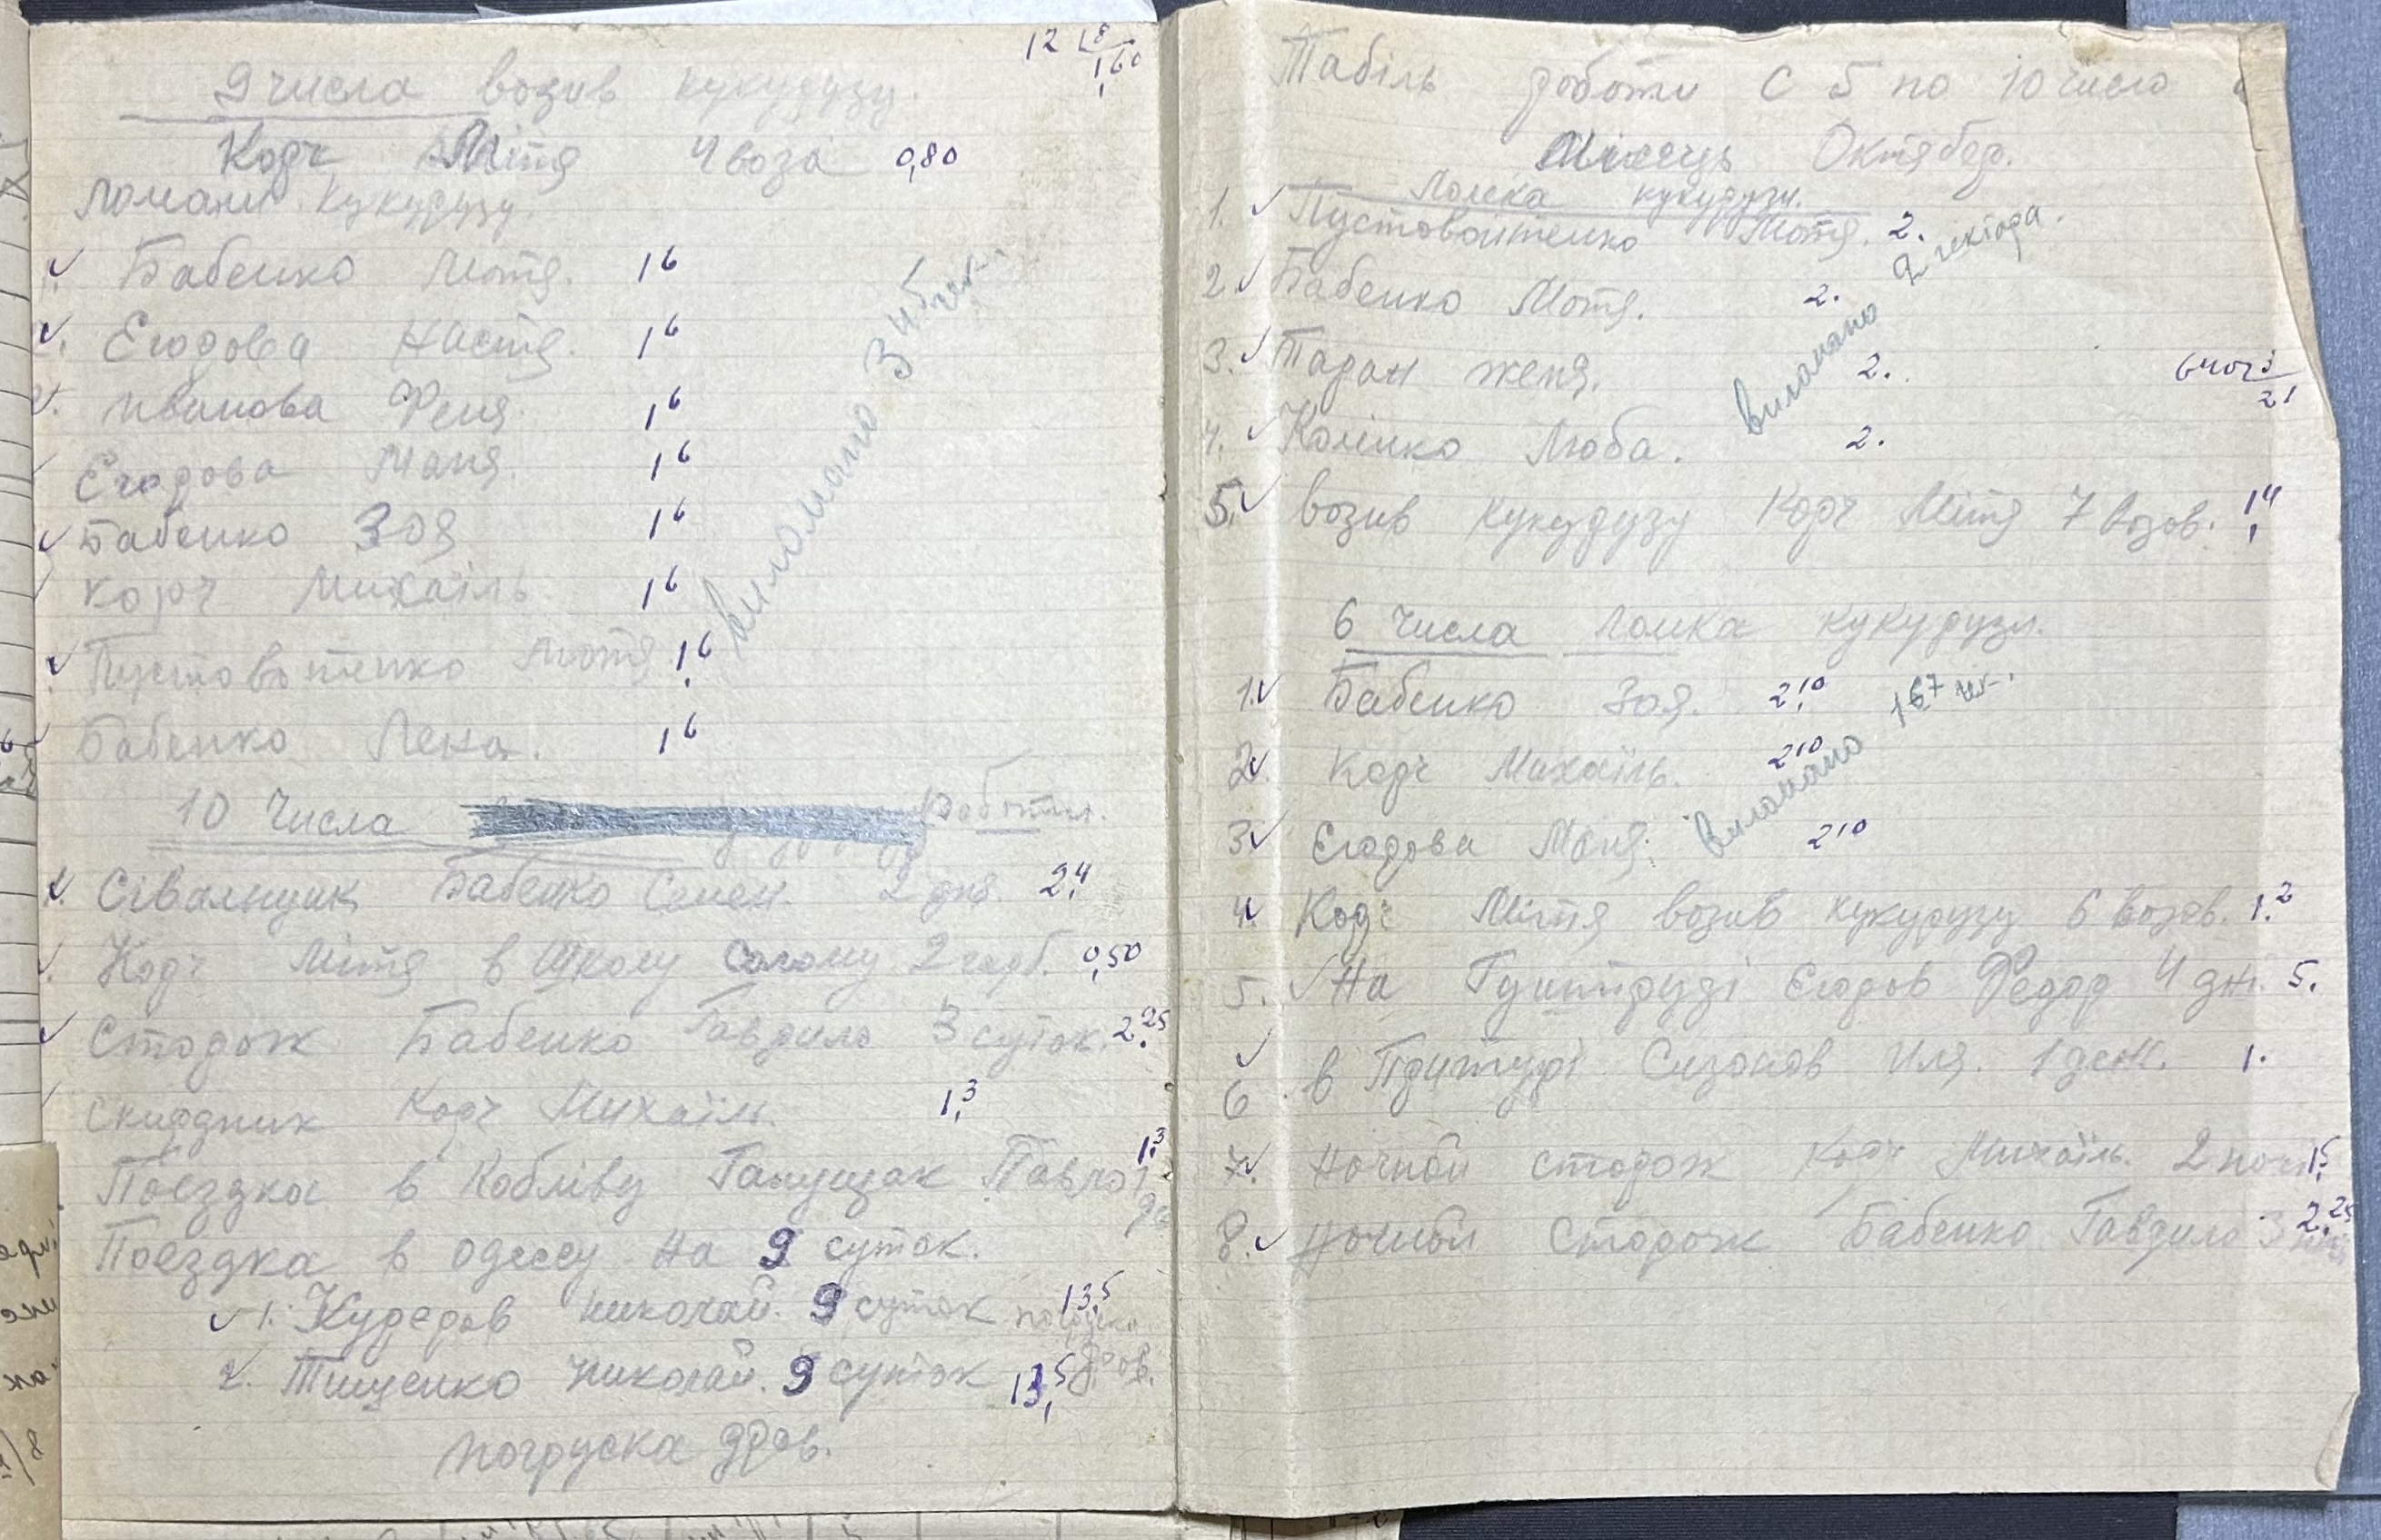 12 18/1,60
9 числа возив кукурузу.
Корч Мітя 4 воза 0,80
Ломали кукурузу.
1. Бабенко Мотя. 1 6
2. Егорова Настя. 1 6
3. Иванова Феня. 1 6
Егорова Маня. 1 6
Бабенко Зоя 1 6
Корч Михаїль 1 6
Пустовотенко Мотя 1,6
Бабенко Лена. 1 6
виломано 3
10 Числа роботи.
Сівальщик Бабенко Семен. 2 дня. 2,4
Корч Мітя в Школу Солому 2 гарб. 0,50
Сторож Бабенко Гаврило 3 суток. 2,25
Скирдник Корч Михаїль. 1,3
Поездка в Кобліву Ганущак Павло 1,3
Поездка в Одессу на 9 суток.
1. Кудеров Николай. 9 суток 13,5
2. Тищенко Николай. 9 суток 13,5 дров.
погруска дров.
Табіль роботи С 5 по 10 число
Місяць Октябер.
Ломка кукурузи.
1. Пустовойтенко Мотя. 2.
2. Бабенко Мотя. 2.
3. Таран женя. 2.
4. Колінко Люба. 2.
виломано 2 гектара.
5. возив кукурузу Корч Мітя 7 возов. 1,4
6 числа ломка кукурузи.
1. Бабенко Зоя. 2,10
2. Корч Михаїль. 2 10
3. Егорова Маня. 2 10
виломано 1 67 гек.
4. Корч Мітя возив кукурузу 6 возов. 1,2
5. На Гринтруді Егоров Федор 4 дні. 5.
6. в Сизонов Иля. 1 ден. 1.
7. Ночной сторож Корч Михаїль. 2 ночі 1,5
8. Ночной Сторож Бабенко Гаврило 3 2,25